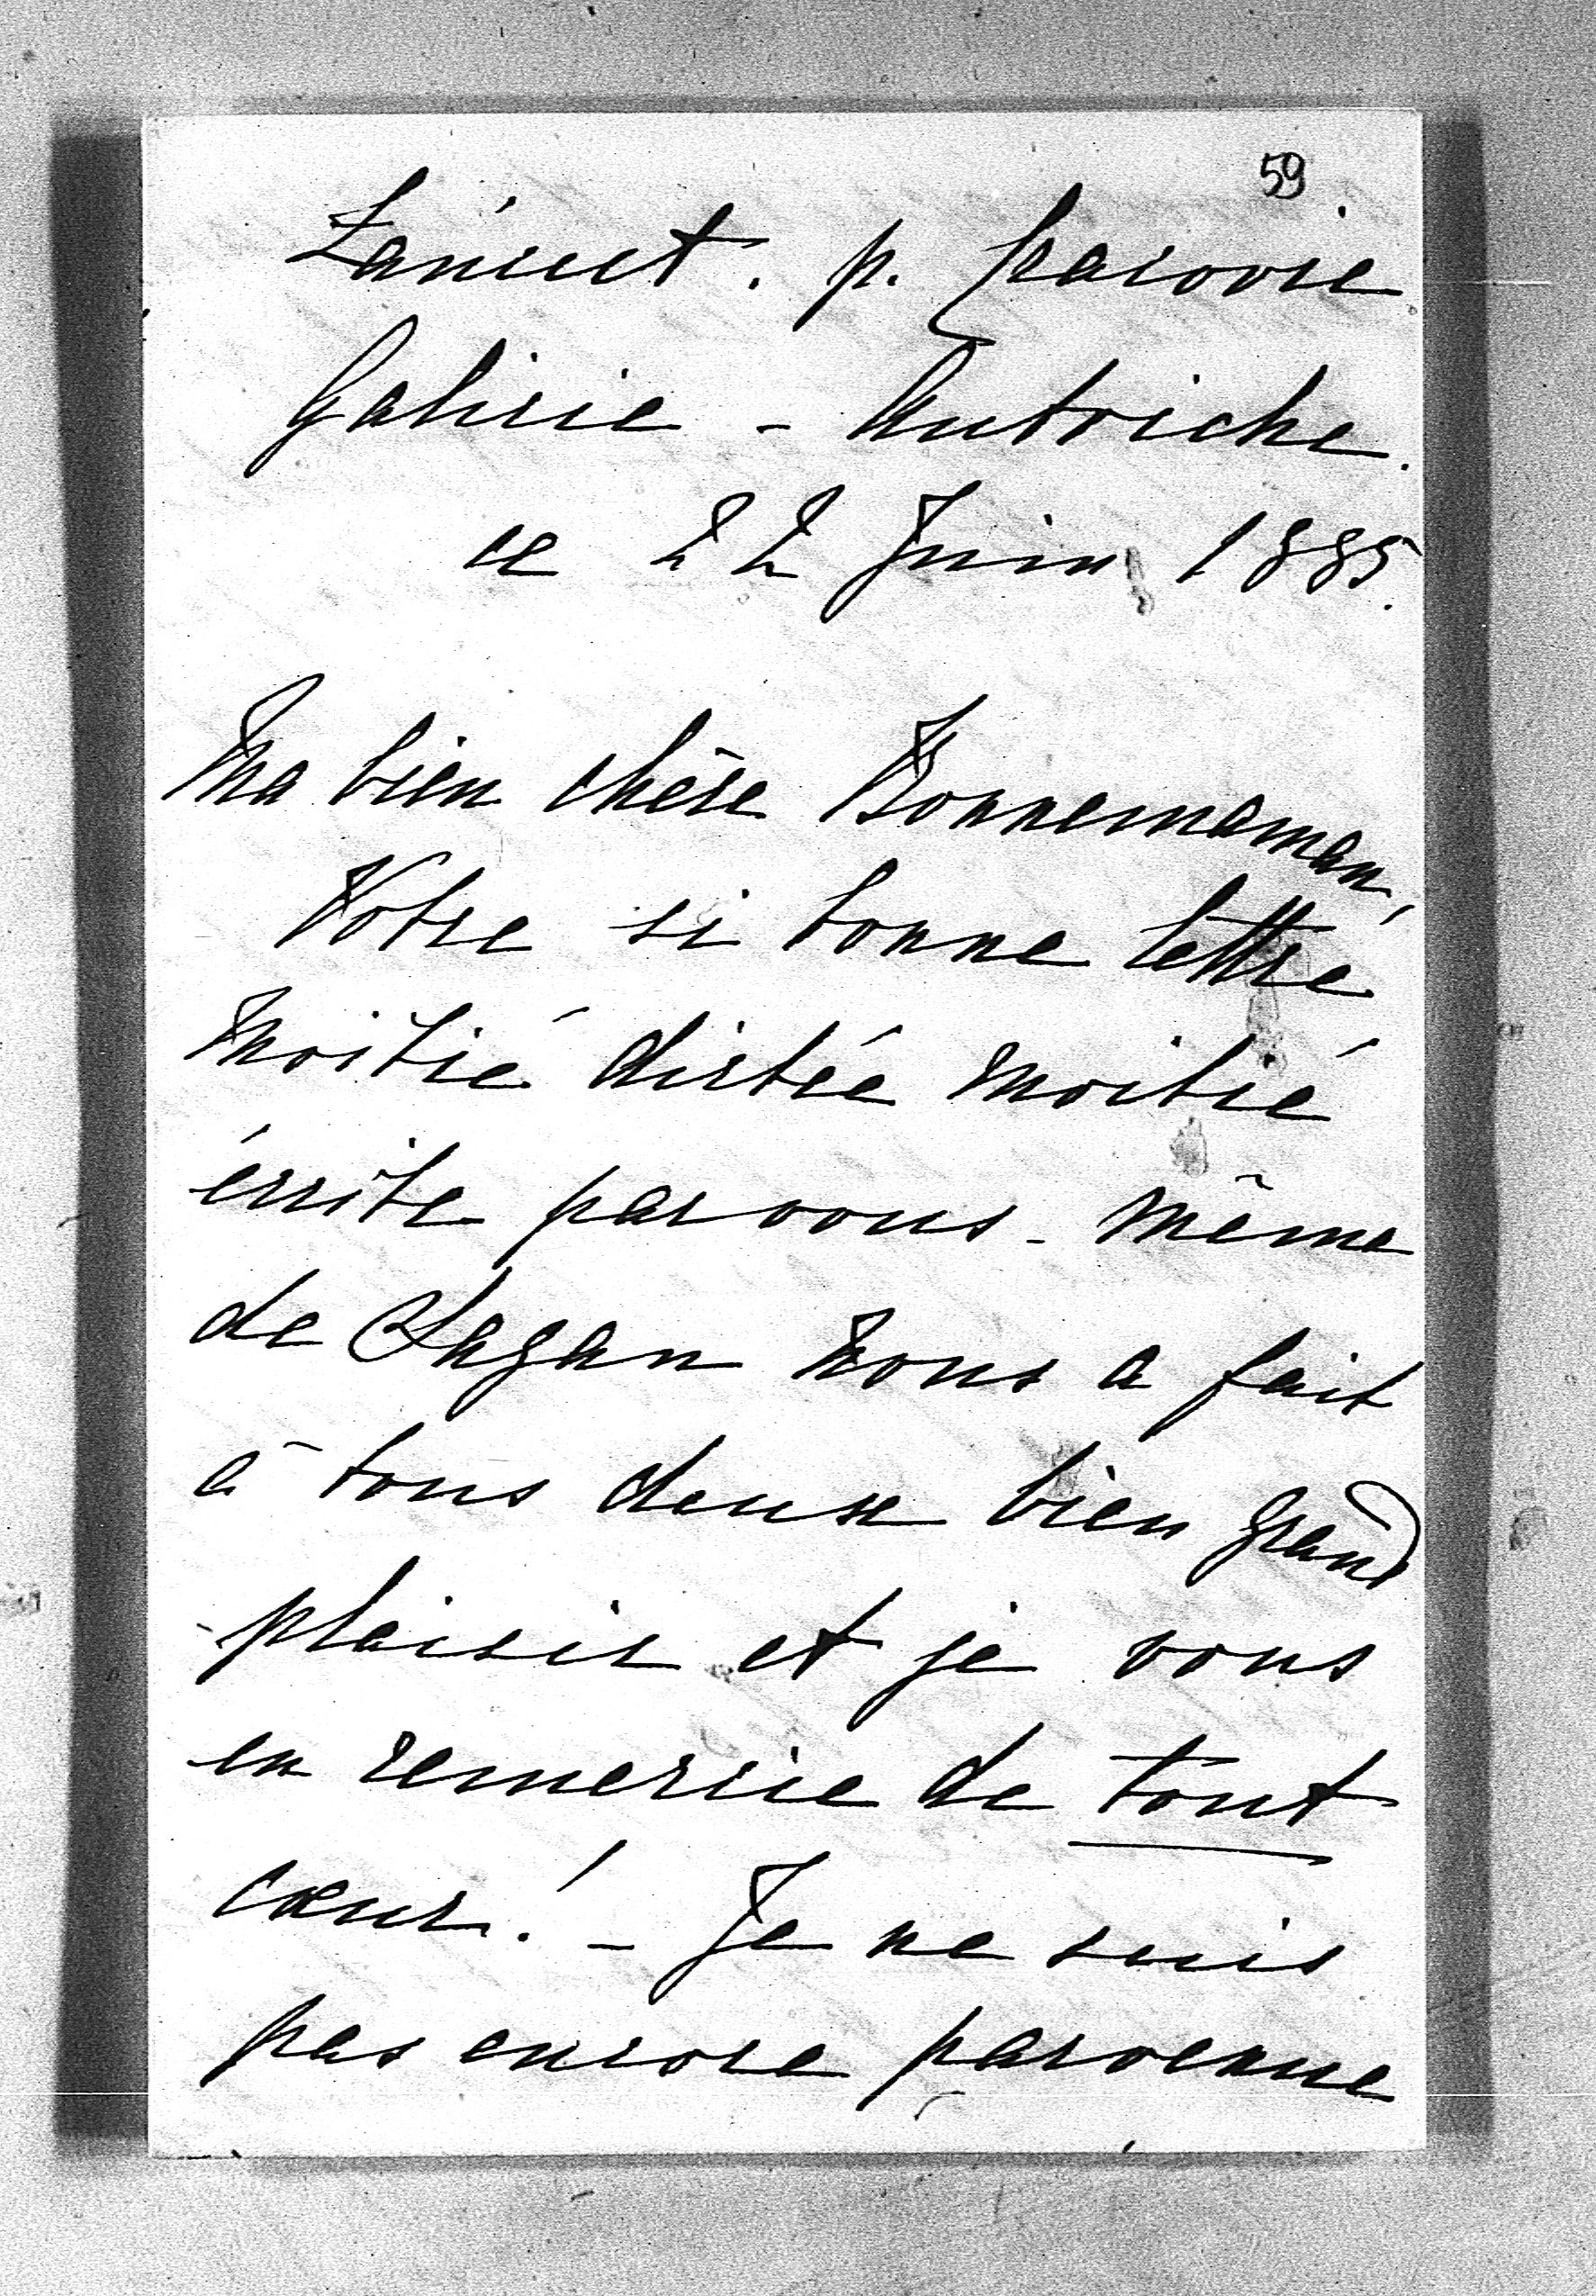 59
Łańcut. p. Cracovie
Galicie - Autriche.
ce 22 Juin 1885.
Ma bien chère Bonnemaman,
Votre si bonne lettre
moitié dictée moitié
écrite par vous-même
de Sagan nous a fait
à tous deux bien grand
plaisir et je vous
en remercie de tout
cœur! - Je ne suis
pas encore parvenue